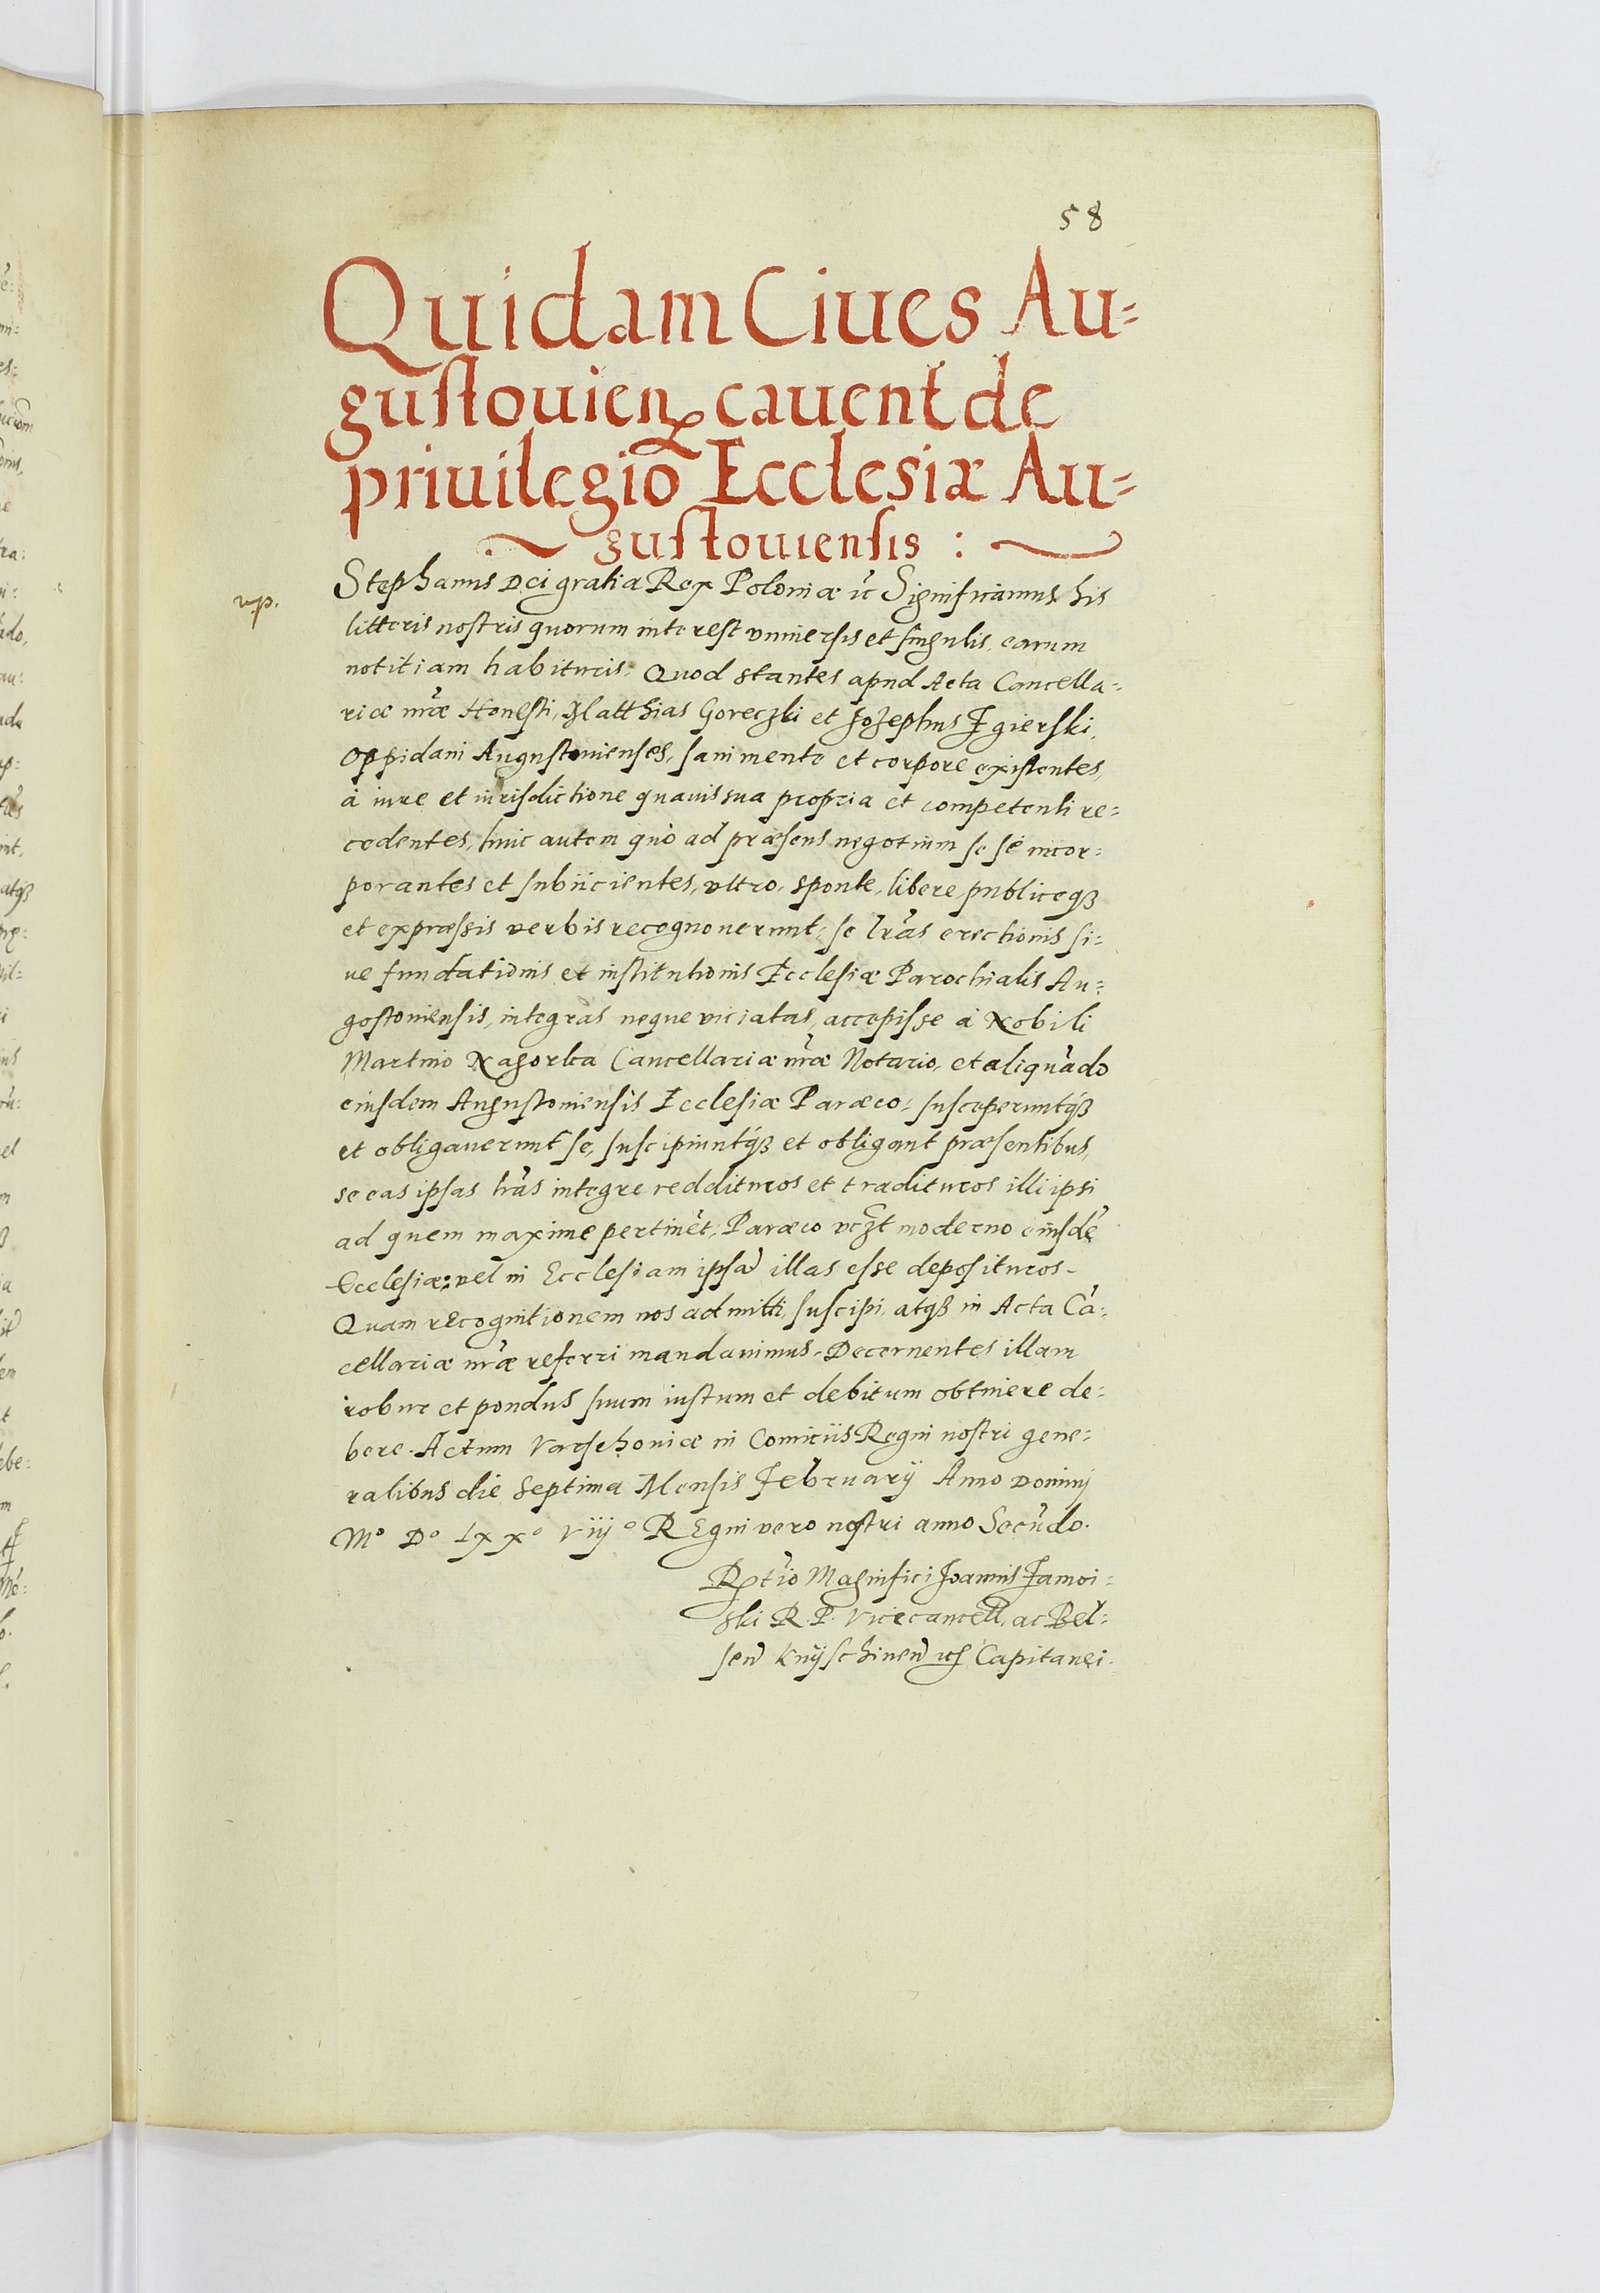 58
Quidam Ciues Au=
gustouien cauent de
priuilegio Ecclesiæ Au=
gustouiensis :
Stephanus Dei gratia Rex Poloniæ &c Significamus his
litteris nostris quorum interest vniuersis et singulis, earum
notitiam habituris. Quod stantes apud Acta Cancella=
riæ nr̃æ Honesti, Matthias Goreczki et Jozephus Zgierski,
Oppidani Augustouienses, sani mente et corpore existentes,
à iure et iurisdictione quauis sua propria et competenti re=
cedentes, huic autem quò ad præsens negotium se sé incor=
porantes et subiicientes, vltro, sponte, libere publiceqz
et expræssis verbis recognouerunt: se lr̃as erectionis si=
ue fundationis et institutionis Ecclesiæ Parochialis Au=
gostouiensis, integras neque viciatas, accepisse à Nobili
Martino Nagorka Cancellariæ nr̃æ Notario, et aliquãdo
eiusdem Augustouiensis Ecclesiæ Paræco: susceperuntqz
et obligauerunt se, suscipiuntqz et obligant præsentibus,
se eas ipsas lr̃as integre reddituros et tradituros illi ipsi
ad quem maxime pertinẽt, Paræco vczt moderno eiusdẽ
Ecclesiæ: vel in Ecclesiam ipsã illas esse deposituros.
Quam recognitionem nos admitti, suscipi, atqz in Acta Cã=
cellariæ nr̃æ referri mandauimus. Decernentes illam
robur et pondus suum iustum et debitum obtinere de=
bere. Actum Varschouiæ in Comitiis Regni nostri gene=
ralibus die Septima Mensis February Anno Dominj
Mº Dº Lxxº viijº REgni vero nostri anno Secũdo.
Rtĩo Magnifici Joannis Zamoi=
ski R. P. Vicecancell, ac Bel=
sen̄ Knyschinen̄ &c Capitanei.